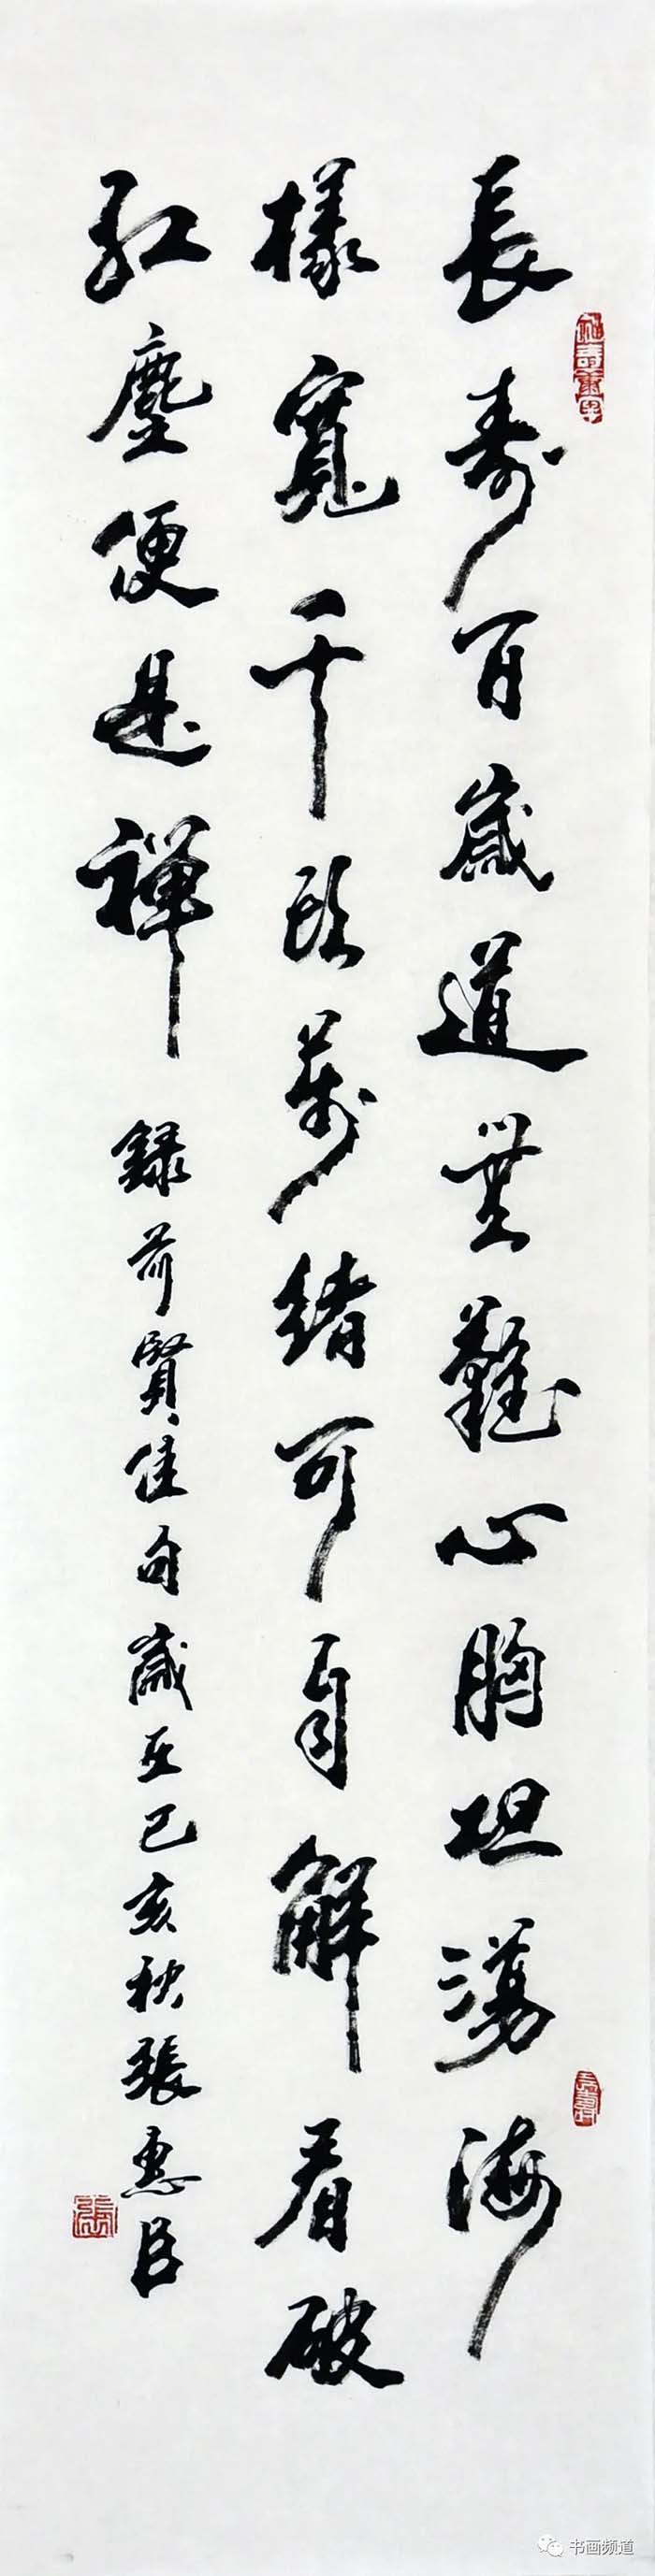 長壽百歲道無難心胸坦蕩海
樣寬千頭萬緒可自解看破
紅塵便是禪
錄前賢佳句歲在己亥秋張惠臣
書画频道